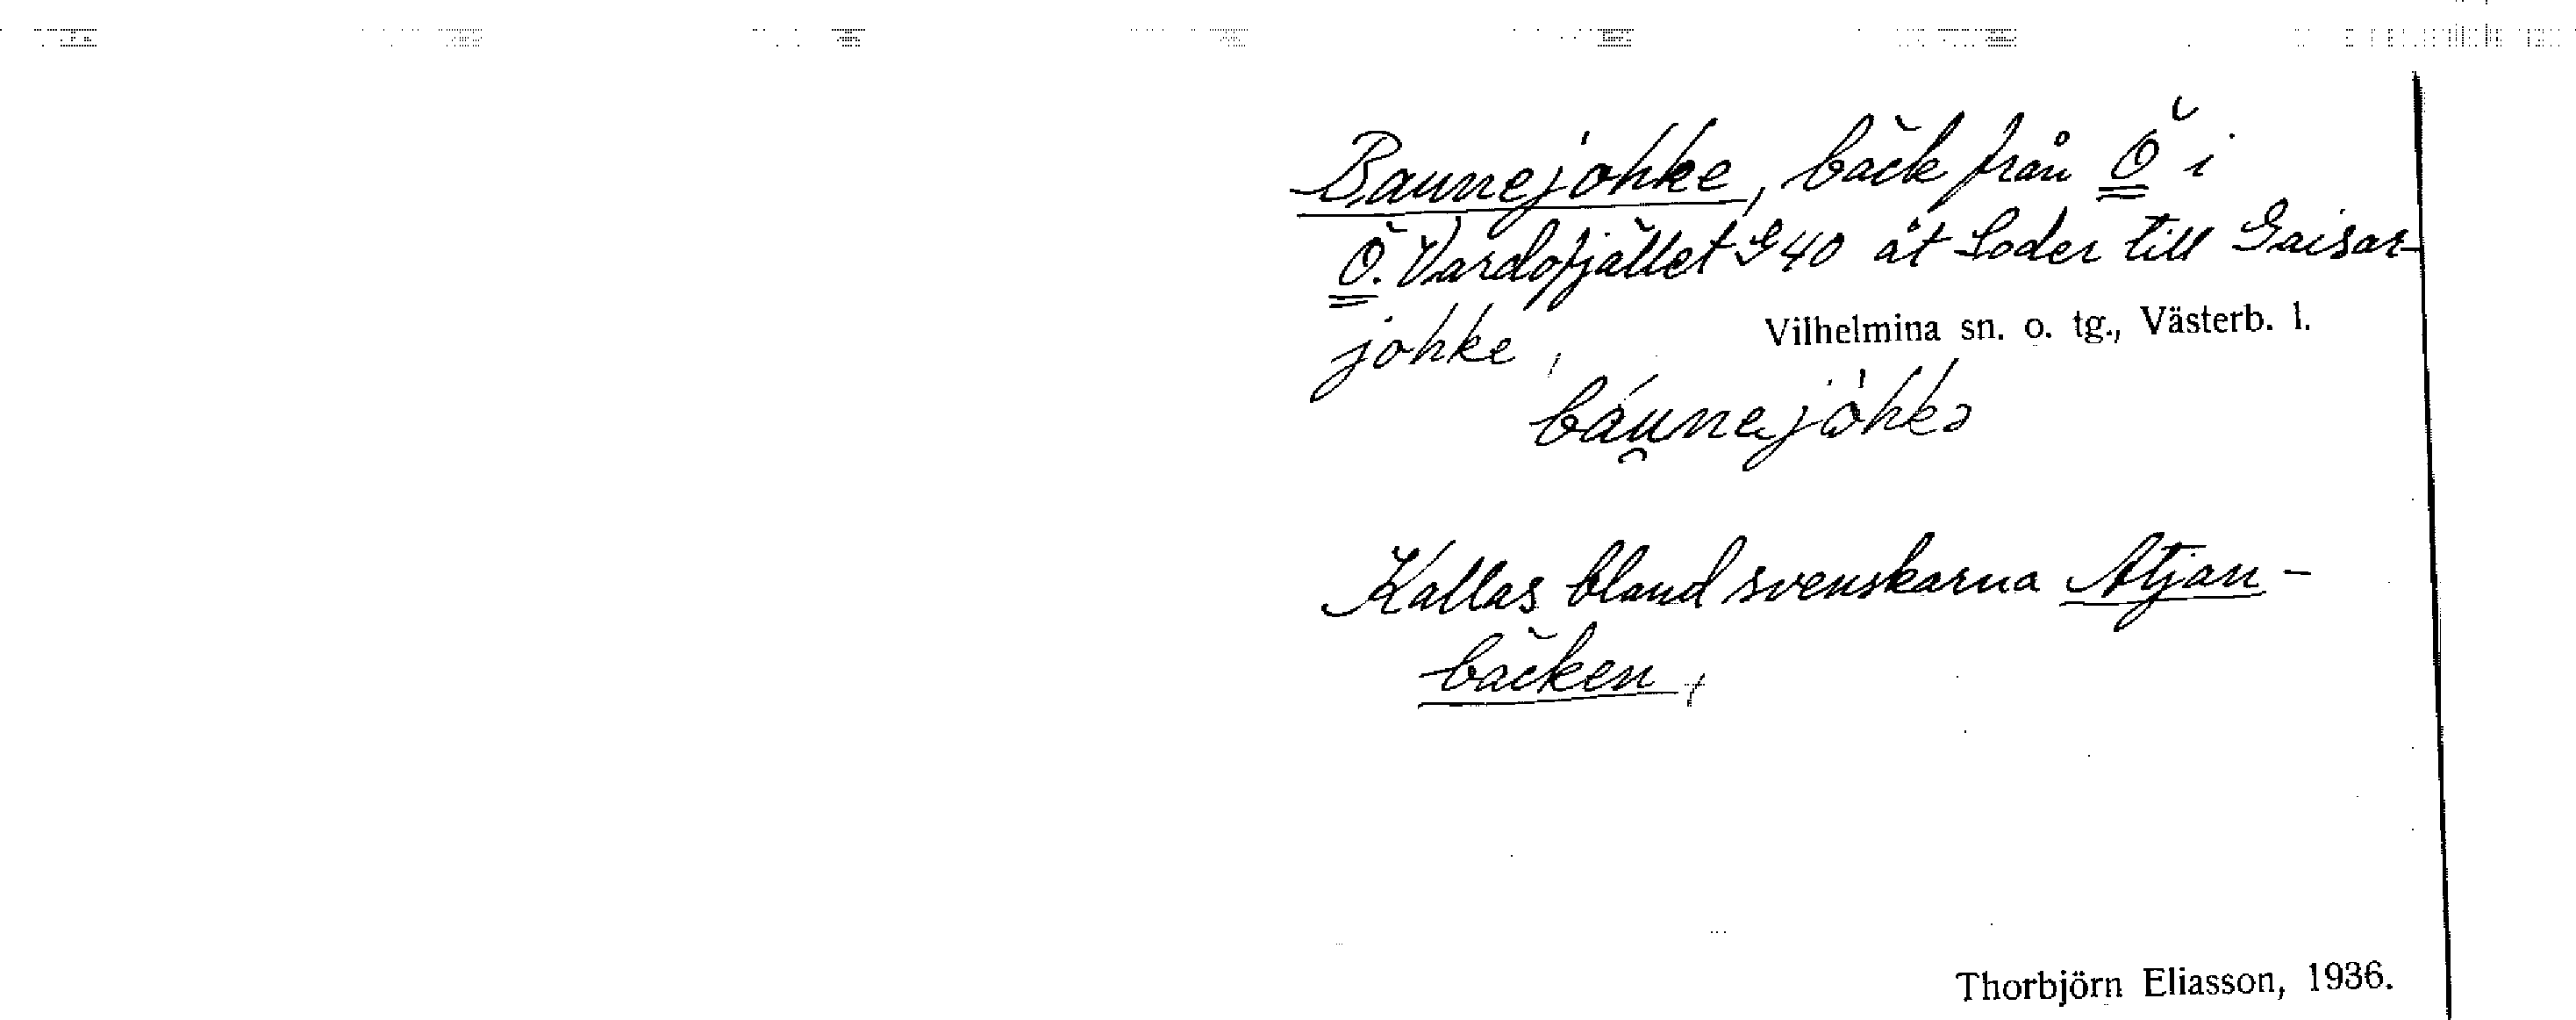 Baunejohke, bäck från Ö i
Ö. Vardofjället G40 åt Söder till Gaisar-
johke, Vilhelmina sn. o. tg., Västerb. l.
báu̯nejåhkə
Kallas bland svenskarna Atjan-
bäcken,
Thorbjörn Eliasson, 1936.